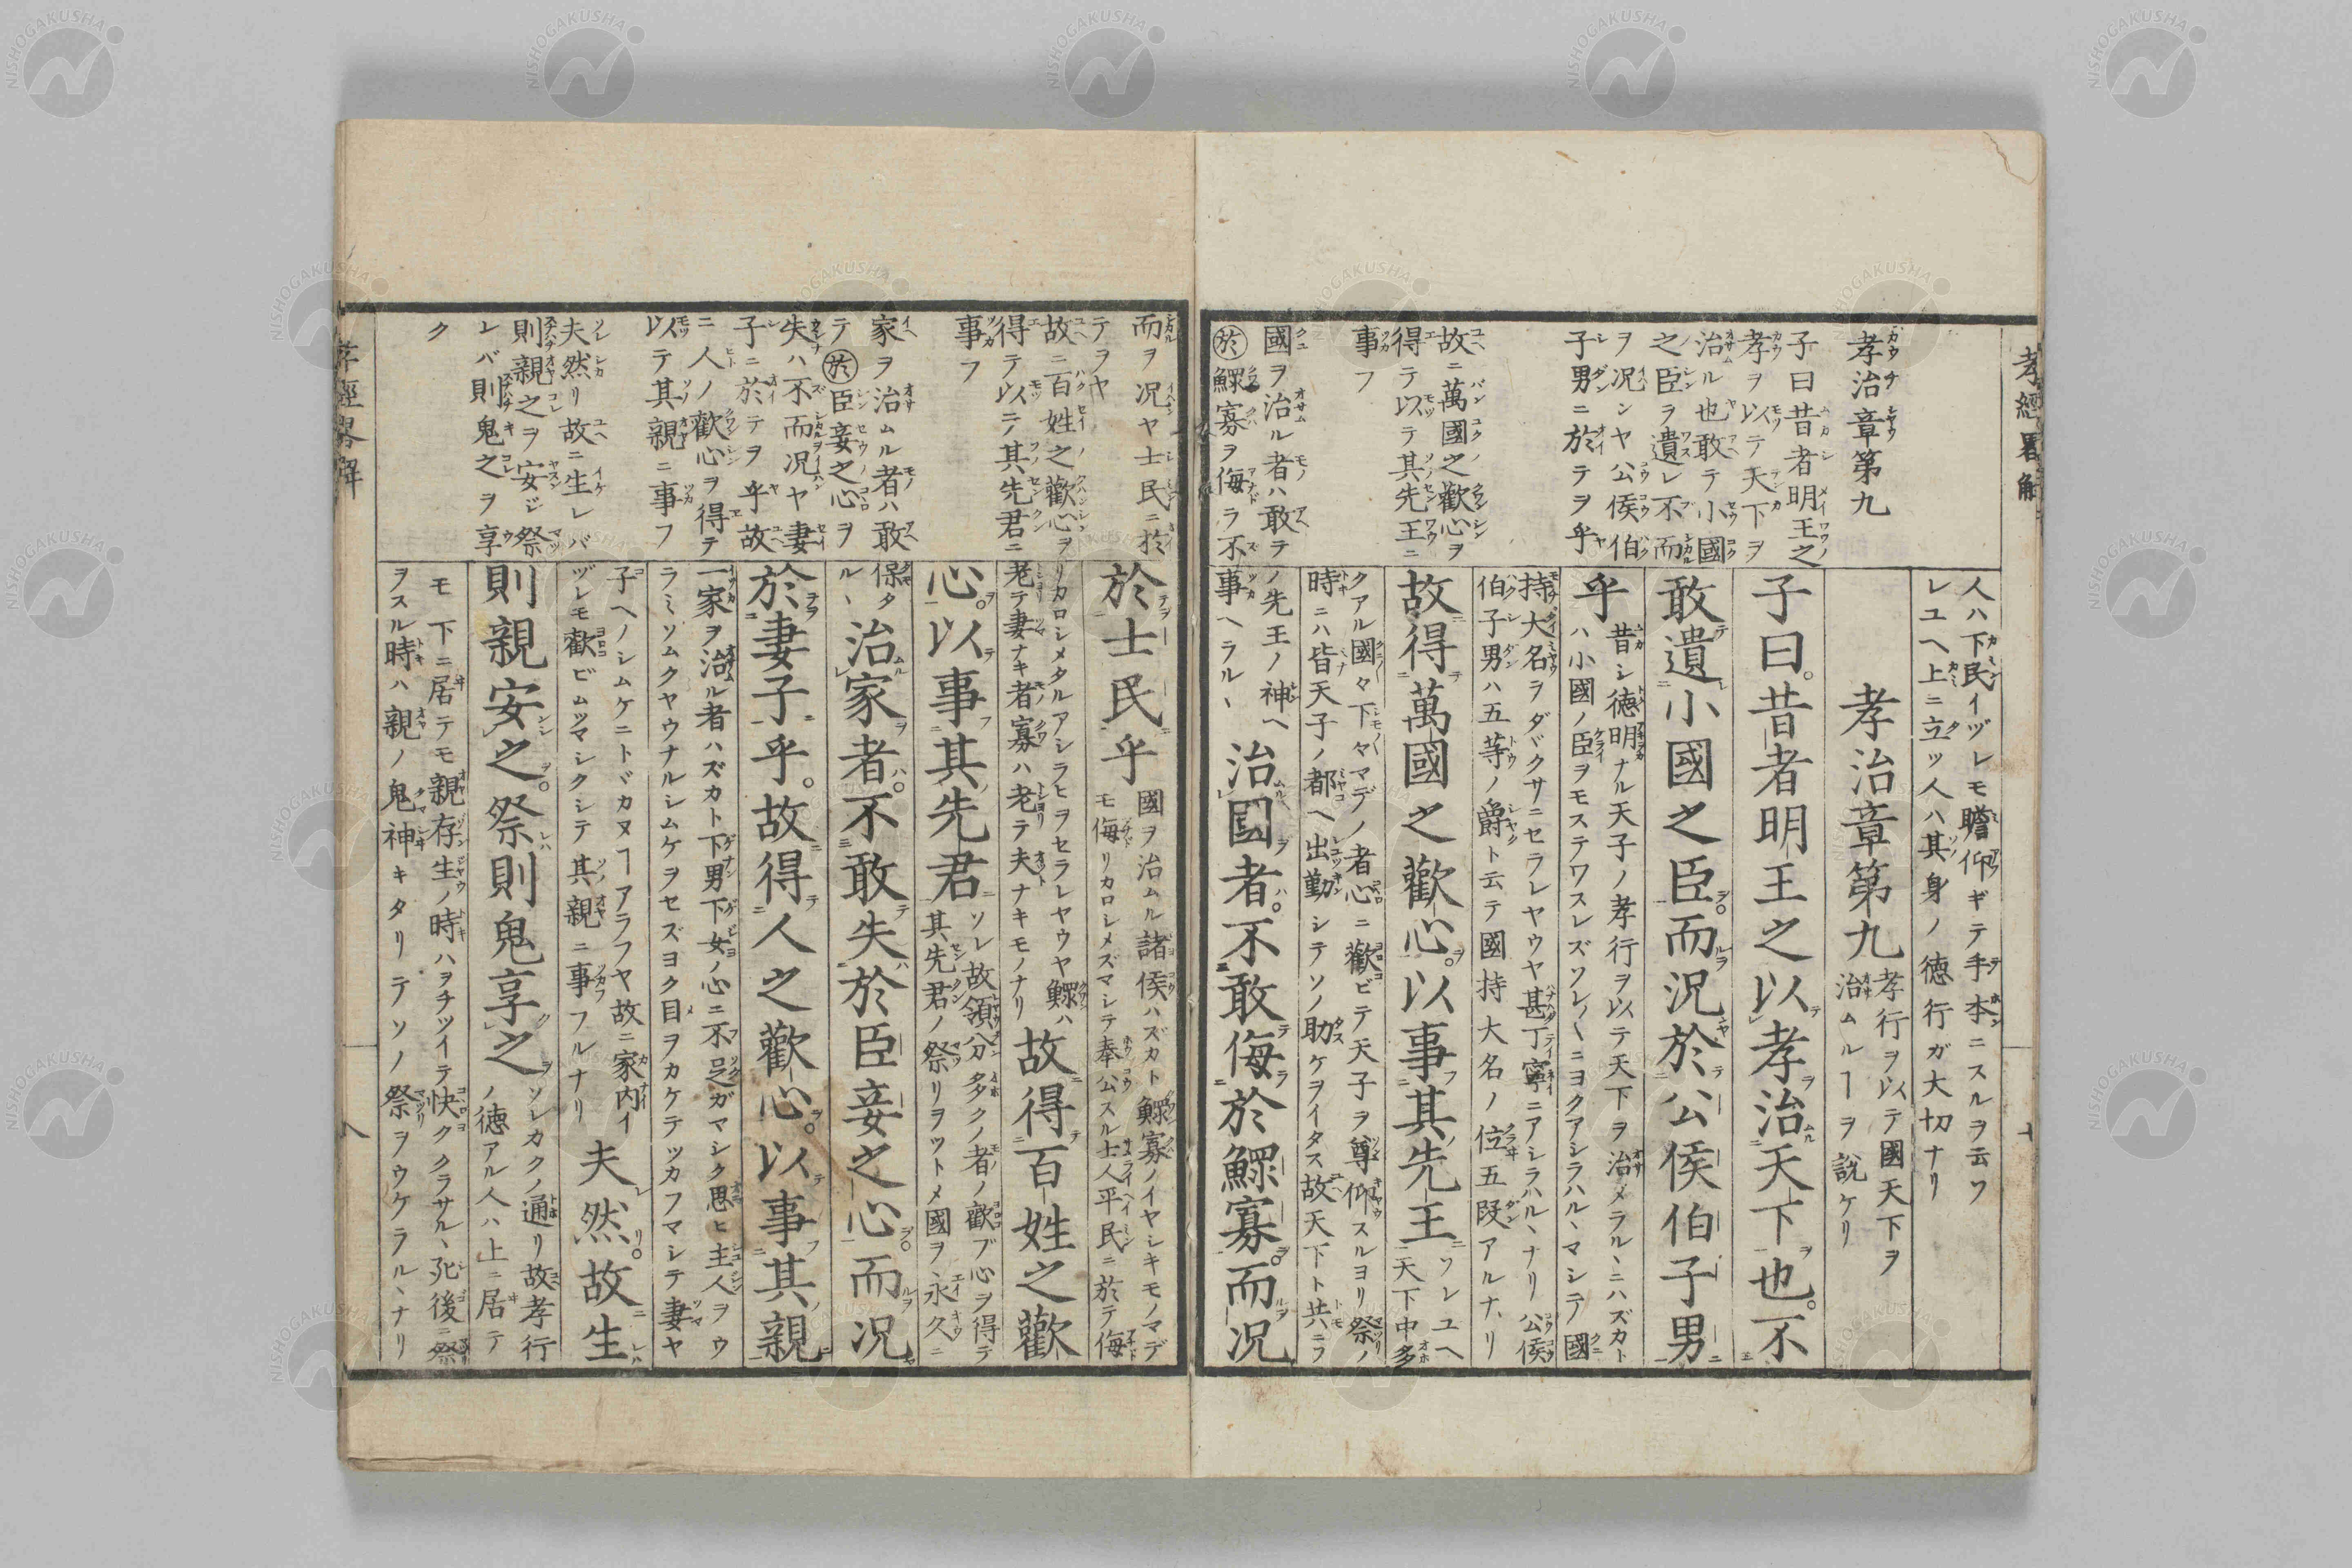 孝經畧解
孝治章第九
子曰昔者明王之
孝ヲ以テ天下ヲ
治ル也敢テ小國
之臣ヲ遺レ不而
ヲ況ンヤ公侯伯
子男ニ於テヲ乎
故ニ萬國之歡心ヲ
得テ以テ其先王ニ
事フ
國ヲ治ル者ハ敢テ
於鰥寡ヲ侮ラ不
人ハ下民イヅレモ瞻仰ギテ手本ニスルヲ云フ
レユヘ上ニ立ツ人ハ其身ノ徳行ガ大切ナリ
孝治章第九
孝行ヲ以テ國天下ヲ
治ムルヿヲ説ケリ
子曰。昔者明王之以孝治天下也。不
敢遺小國之臣。而況於公侯伯子男
乎
昔シ徳明ナル天子ノ孝行ヲ以テ天下ヲ治メラルヽニハズカト
ハ小國ノ臣ヲモステワスレズソレ〳〵ニヨクアシラハルヽマシテ國
持大名ヲダクサニセラレヤウヤ甚丁寧ニアシラハルヽナリ公侯
伯子男ハ五等ノ爵ト云テ國持大名ノ位五段アルナリ
故得萬國之歡心。以事其先王
ソレユヘ
天下中多
クアル國々下々マデノ者心ニ歡ビテ天子ヲ尊仰スルヨリ祭ノ
時ニハ皆天子ノ都ヘ出勤シテソノ助ケヲイタス故天下ト共ニフ
ノ先王ノ神ヘ
事ヘラルヽ
治國者。不敢侮於鰥寡。而況
而ヲ況ヤ士民ニ於
テヲヤ
故ニ百姓之歡心ヲ
得テ以テ其先君ニ
事フ
家ヲ治ムル者ハ敢
テ於臣妾之心ヲ
失ハ不而況ヤ妻
子ニ於テヲ乎故
ニ人ノ歡心ヲ得テ
以テ其親ニ事フ
夫然リ故ニ生レバ
則親之ヲ安ジ祭
レバ則鬼之ヲ享
ク
於士民乎
國ヲ治ムル諸侯ハズカト鰥寡ノイヤシキモノマデ
モ侮リカロシメズマシテ奉公スル士人平民ニ於テ侮
リカロシメタルアシラヒヲセラレヤウヤ鰥ハ
老テ妻ナキ者寡ハ老テ夫ナキモノナリ
故得百姓之歡
心。以事其先君
ソレ故領分多クノ者ノ歡ブ心ヲ得テ
其先君ノ祭リヲツトメ國ヲ永久ニ
保タ
ルヽ
治家者。不敢失於臣妾之心。而況
於妻子乎。故得人之歡心。以事其親
一家ヲ治ル者ハズカト下男下女ノ心ニ不足ガマシク思ヒ主人ヲウ
ラミソムクヤウナルシムケヲセズヨク目ヲカケテツカフマシテ妻ヤ
子ヘノシムケニトヾカヌヿアラフヤ故ニ家内イ
ヅレモ歡ビムツマシクシテ其親ニ事フルナリ
夫然。故生
則親安之。祭則鬼享之
ソレカクノ通リ故孝行
ノ徳アル人ハ上ニ居テ
モ下ニ居テモ親存生ノ時ハヲチツイテ快ククラサルヽ死後ニ祭
ヲスル時ハ親ノ鬼神キタリテソノ祭ヲウケラルヽナリ
孝經畧解
八
NISHOGAKUSHA